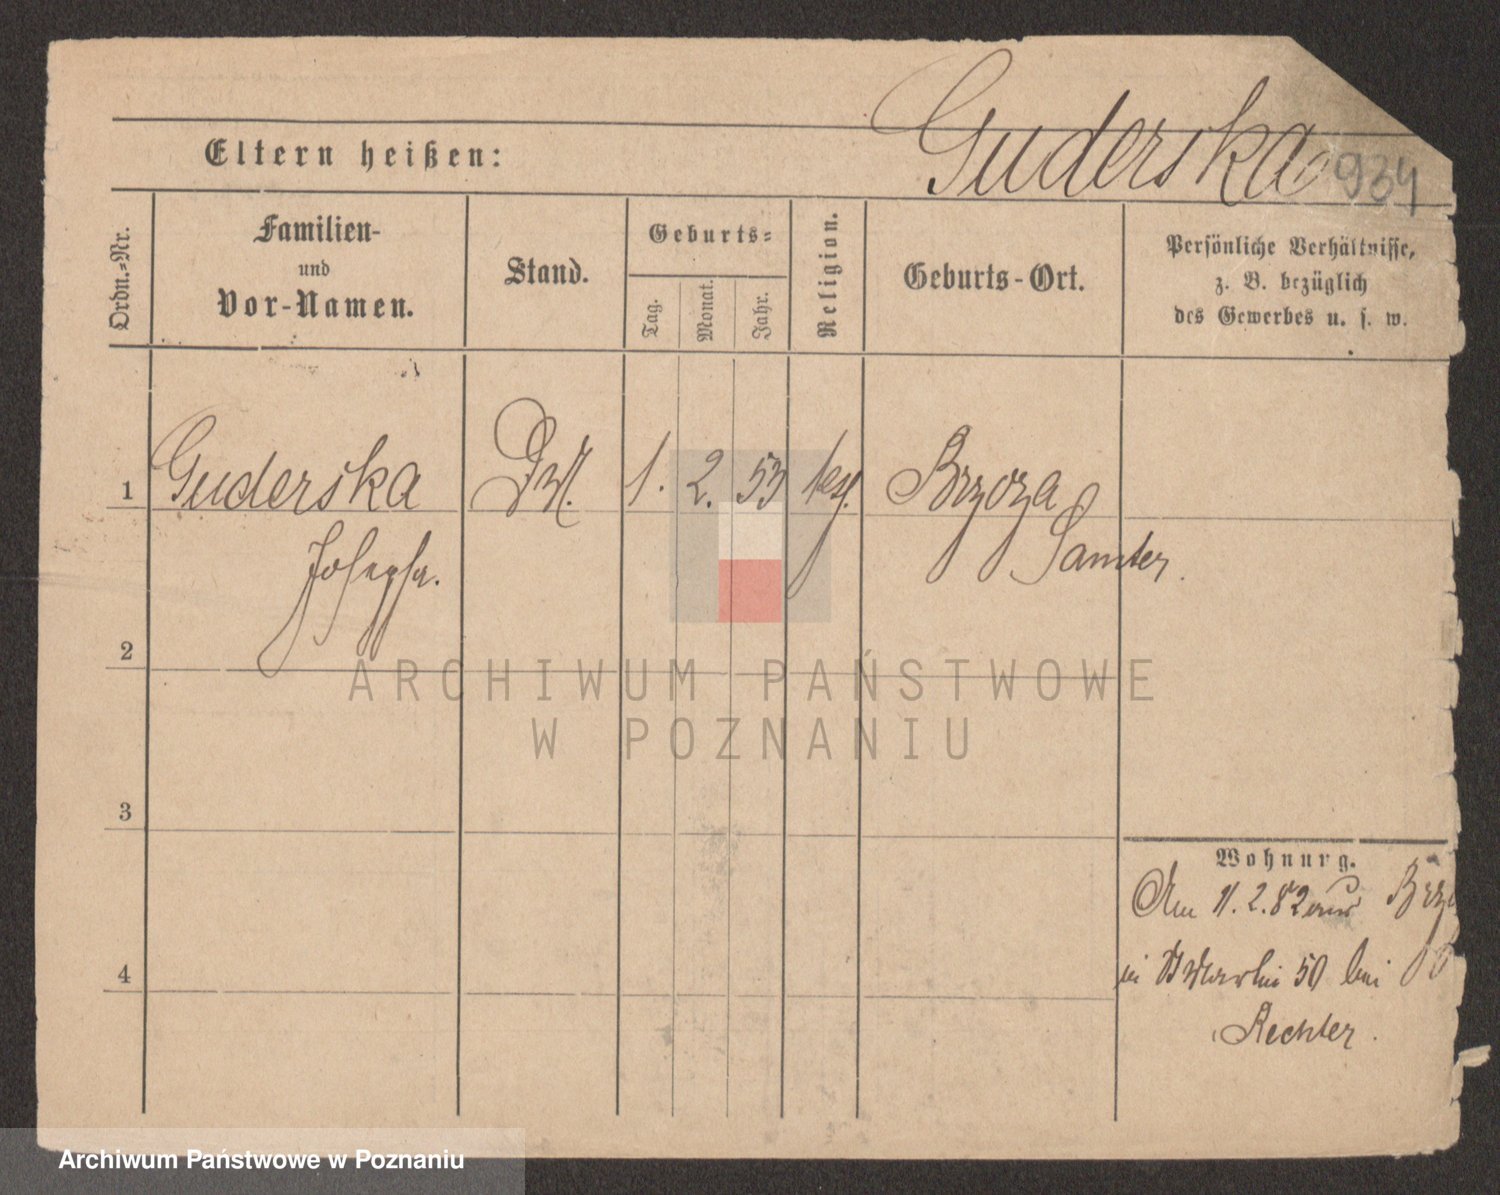 Guderska
934
Eltern heißen:
Ordn.-Nr.
Familien-
und
Vor-Namen.
Stand.
Geburts-
Tag.
Monat.
Jahr.
Religion.
Geburts-Ort.
Persönliche Verhältnisse,
z. B. bezüglich
des Gewerbes u. s. w.
1 Guderska 1. 2. 53 Brzoza
Josepha. Samter.
2
3
4
Wohnung.
Am 11.2.82 aus
in St Martin 50 bei
Rechter.
ARCHIWUM PAŃSTWOWE
W POZNANIU
Archiwum Państwowe w Poznaniu